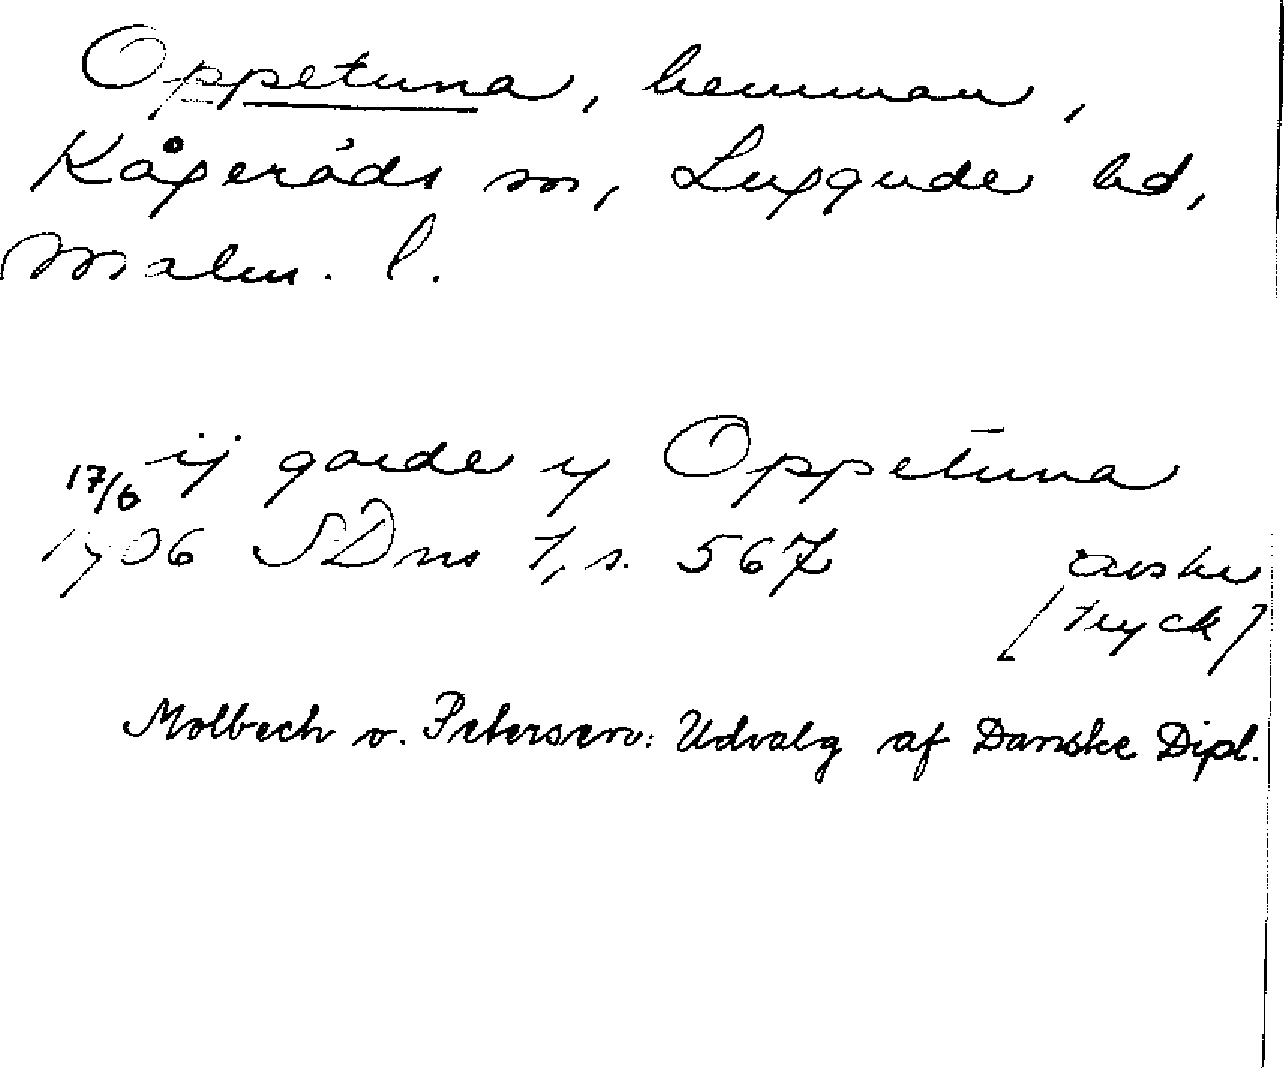 Oppetuna, hemman,
Kågeröds sn, Luggude hd,
Malm. l.
17/6 ij garde y Oppetuna
1406 SDns 1, s. 567 avskr
[tryck]
Molbech o. Petersen: Udvalg af Danske Dipl.